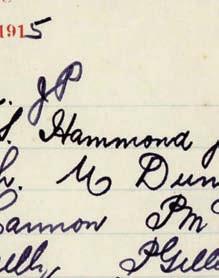 1915
JP
S. Hammond J
h. M Dun
Cannon PM
Gelly PGell